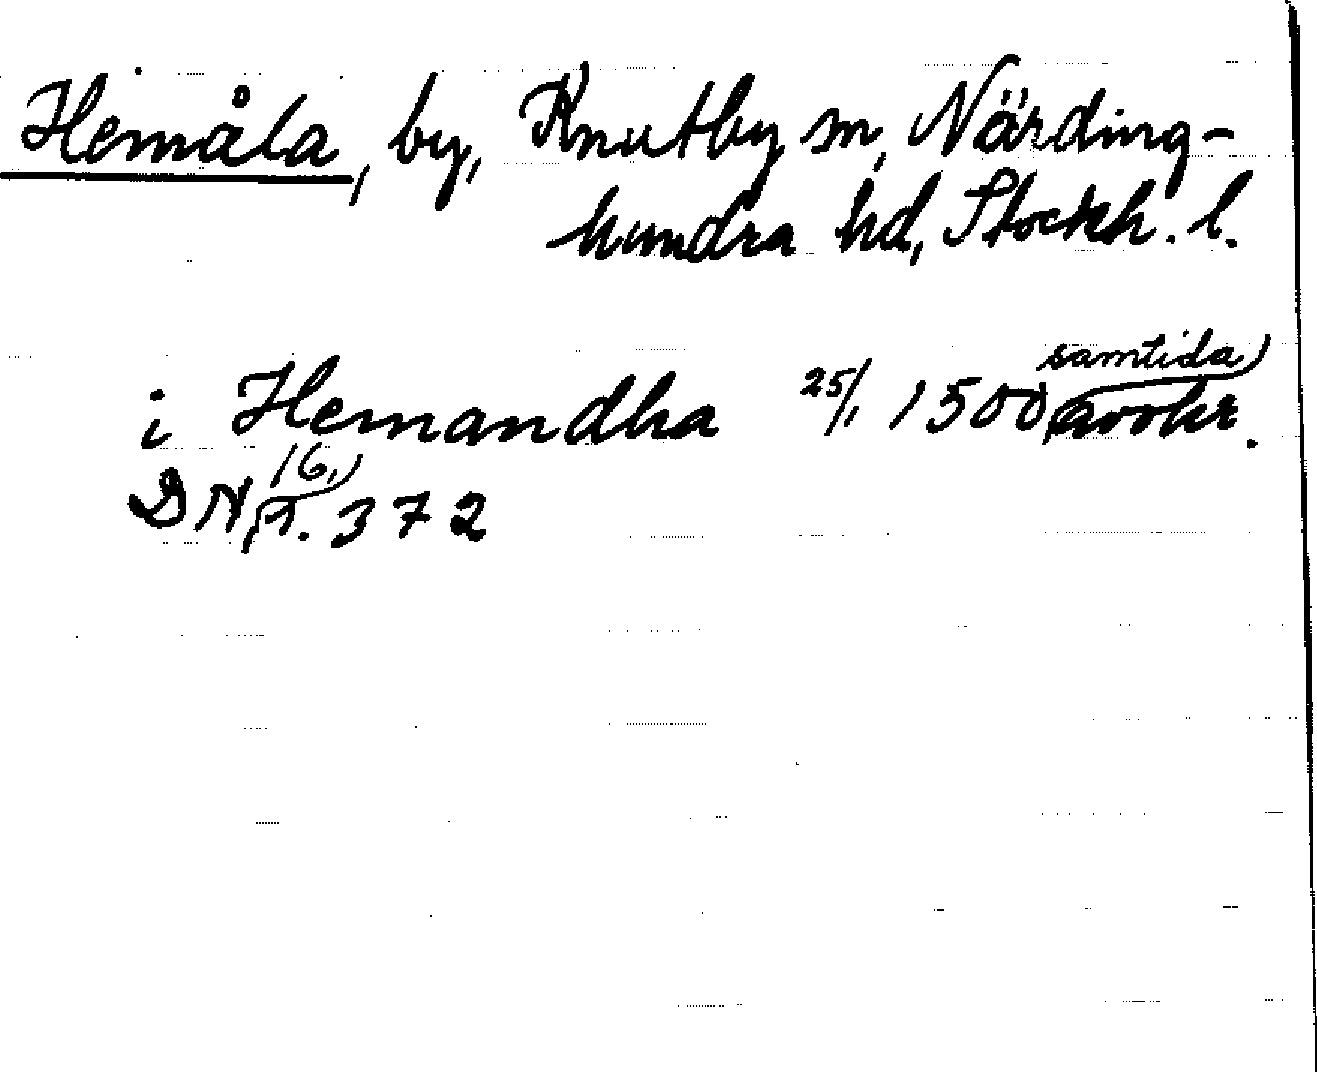 Hemåla, by, Knutby sn, Närding-
hundra hd, Stockh. l.
i Hemandha 25/1 1500 samtida avskr.
DN 16, s. 372